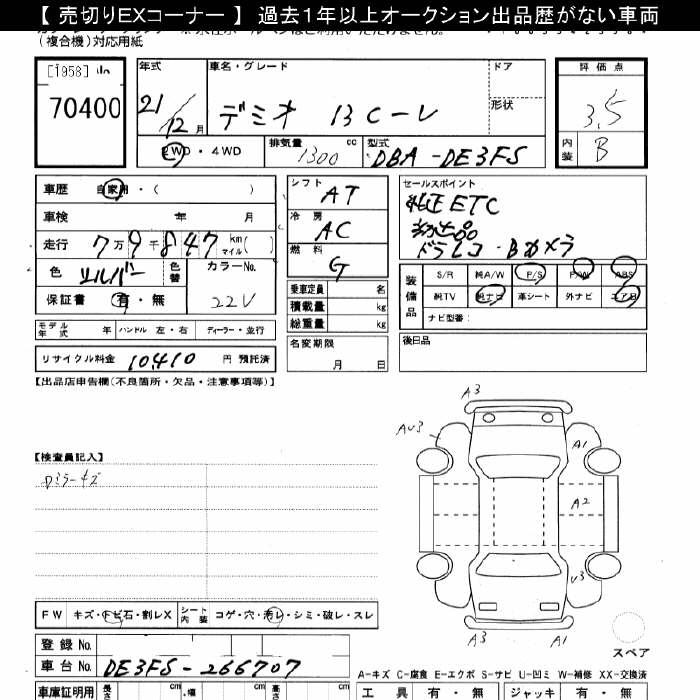 【 売切りEXコーナー 】 過去1年以上オークション出品歴がない車両
(複合機)対応用紙
[1958]
70400
年式 車名・グレード ドア 評価点
21/12月 デミオ 13C-V 形状 3.5
2WD・4WD 排気量 1300 cc 型式 DBA-DE3FS 内装 B
車歴 自家用・( )
車検 年 月
走行 7万9千847 km(マイル)
色 シルバー 色替 カラーNo. 22V
保証書 有・無
シフト AT
冷房 AC
燃料 G
乗車定員 名
積載量 kg
総重量 kg
セールスポイント
純正ETC
ドラレコ・Bカメラ
装備品 S/R 純A/W P/S P/W ABS
純TV 純ナビ 革シート 外ナビ エアB
ナビ型番:
モデル年式 年 ハンドル 左・右 ディーラー・並行
名変期限 月 日
後日品
リサイクル料金 10,410 円 預託済
【出品店申告欄(不良箇所・欠品・注意事項等)】
A3
AU3
A1
【検査員記入】
Dミラーキズ
A2
U3
A3
A1
FW キズ・トビ石・割レX シート内装 コゲ・穴・汚レ・シミ・破レ・スレ
スペア
登録 No.
車台 No. DE3FS-266707
A-キズ C-腐食 E-エクボ S-サビ U-凹ミ W-補修 XX-交換済
車庫証明用 長さ cm 幅 cm 高さ cm 工具 有・無 ジャッキ 有・無